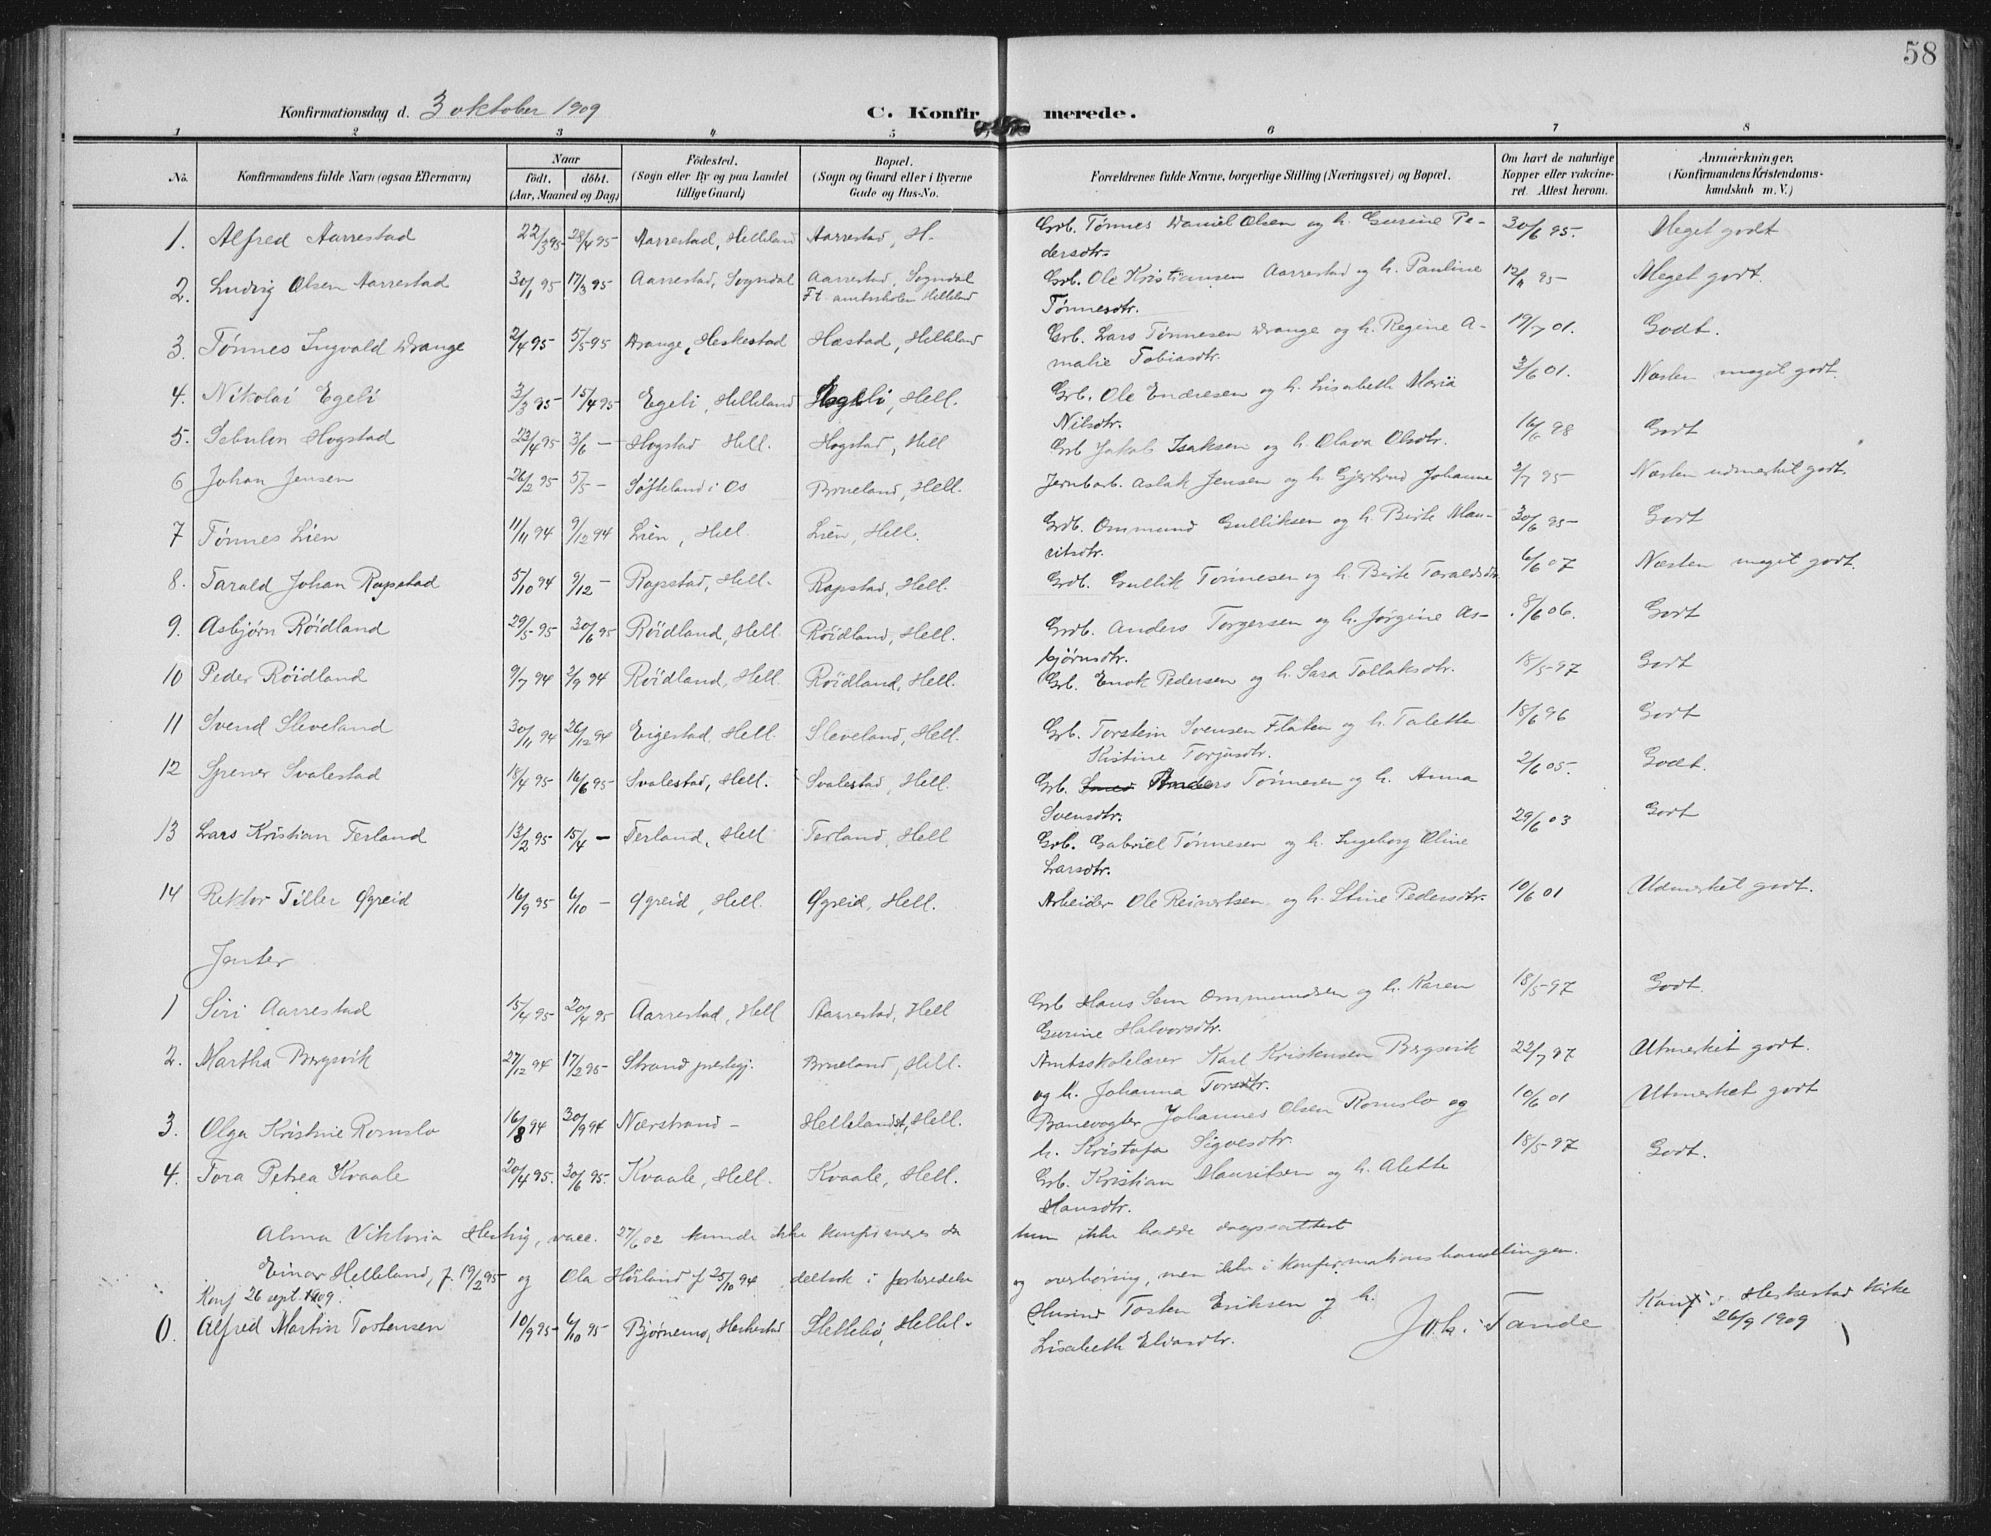 58
Konfirmationsdag d. 3 oktober 1909 C. Konfirmerede.
1 2 3 4 5 6 7 8
No. Konfirmandens fulde Navn (ogsaa Efternavn) Naar födt. döbt. (Aar, Maaned og Dag) Födested. (Sogn eller By og paa Landet tillige Gaard) Bopæl. (Sogn og Gaard eller i Byerne Gade og Hus-No. Forældrenes fulde Navne, borgerlige Stilling (Næringsvei) og Bopæl. Om havt de naturlige Kopper eller vakcineret. Attest herom. Anmærkninger. (Konfirmandens Kristendomskundskab m. V.)
1. Alfred Aarrestad 22/3 95 28/4 95 Aarrestad, Helleland Aarrestad, H. Grb. Tønnes Daniel Olsen og h. Gurine Pe- 30/6 95. Meget godt
dersdtr.
2. Ludvig Olsen Aarrestad 30/1 95 17/3 95 Aarrestad, Sogndal Aarrestad, Sogndal Grb. Ole Kristiansen Aarrestad og h. Pauline 12/11 95 Meget godt.
Ft. amtsskolen Helleland Tønnesdtr.
3. Tønnes Ingvald Drange 2/4 95 5/5 95 Drange, Heskestad Hæstad, Helleland Grb. Lars Tønnesen Drange og h. Regine A- 19/7 01. Godt.
malie Tobiasdtr.
4. Nikolai Egeli 3/3 95 15/4 95 Egeli, Helleland Egeli, Hell. Grb. Ole Endresen og h. Lisabeth Maria 3/6 01. Næsten meget godt.
Nilsdtr.
5. Sebulon Hogstad 23/4 95 3/6 — Hogstad Hell. Hogstad, Hell Grb Jakob Isaksen og h. Olava Olsdtr. 16/6 98 Godt
6 Johan Jensen 26/2 95 5/5 — Søfteland i Os Brueland, Hell. Jernbarb. Aslak Jensen og h. Gjertrud Johanne 2/7 95 Næsten udmerket godt.
7 Tønnes Lien 11/11 94 9/12 94 Lien, Hell. Lien, Hell. Grb. Ommund Gulliksen og h. Birte Mau- 30/6 95 Godt
ritsdtr.
8. Tarald Johan Rapstad 5/10 94 9/12 — Rapstad, Hell. Rapstad, Hell. Grb. Gullik Tønnesen og h. Birte Taraldsdtr. 6/6 07 Næsten meget godt.
9. Asbjørn Röidland 29/5 95 30/6 95 Röidland, Hell Röidland, Hell. Grb. Anders Torgersen og h. Jørgine As- 8/6 06. Godt
bjørnsdtr.
10 Peder Röidland 9/7 94 2/9 94 Röidland, Hell. Röidland, Hell. Grb. Enok Pedersen og h. Sara Tollaksdtr. 18/5 97 Godt
11 Svend Sleveland 30/11 94 26/12 94 Eigestad, Hell. Sleveland, Hell. Grb. Torstein Svensen Flaten og h. Taletta 18/6 96 Godt
Kistine Torjusdtr.
12 Spener Svalestad 18/4 95 16/6 95 Svalestad, Hell. Svalestad, Hell. Grb. Anders Tønnesen og h. Anna 2/6 05. Godt.
Svensdtr.
13 Lars Kristian Terland 13/2 95 15/4 — Terland, Hell Terland, Hell Grb. Gabriel Tønnesen og h. Ingeborg Oline 29/6 03 Godt
Larsdtr.
14 Rektor Tiller Øgreid 16/9 95 6/10 — Øgreid, Hell. Øgreid, Hell. Arbeider Ole Reinertsen og h. Stine Pedersdtr. 10/6 01 Udmerket godt.
Jenter
1 Siri Aarrestad 15/4 95 20/4 95 Aarrestad, Hell Aarrestad, Hell Grb Hans Sem Ommundsen og h. Karen 18/5 97 Godt.
Gurine Halvorsdtr.
2. Martha Bergsvik 27/12 94 17/2 95 Strand prestegj. Brueland, Hell. Amtsskolelærer Karl Kristensen Bergsvik 22/7 97 Utmerket godt.
og h. Johanna Torsdtr.
3. Olga Kristine Romslo 16/8 94 30/9 94 Nærstrand — Hellelandst, Hell. Banevogter Johannes Olsen Romslo og 10/6 01 Utmerket godt
h. Kristofa Sigvesdtr.
4. Tora Petrea Kvaale 20/4 95. 30/6 95. Kvaale, Hell. Kvaale, Hell. Grb. Kristian Mauritsen og h. Alette 18/5 97 Godt.
Hansdtr.
Alma Viktoria vacc. 27/6 02 kunde ikke konfirmeres da hun ikke hadde daapsattest
Einar Helleland, f. 19/2 95 og Ola Höiland f 25/10 94 deltok i forberedelse og overhöring, men ikke i konfirmationshandlingen.
Konf 26 sept. 1909.
0. Alfred Martin Tostensen 10/9 95 6/10 95 Bjørnemo, Heskestad Hellel. Husmd Tosten Eriksen og h. Konf i Heskestad kirke
Lisabeth Eliasdtr. Joh. Tande 26/9 1909